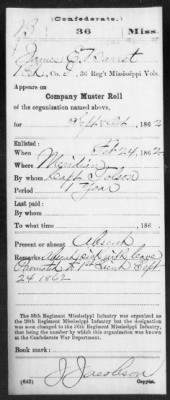 (Confederate.)
36 Miss.
James E.
Co. 36 Reg't Mississippi Vols.
Appears on
Company Muster Roll
of the organization named above,
for 186
Enlisted:
When 186
Where Meridian
By whom Capt
Period 1 Year
Last paid:
By whom
To what time , 186 .
Present or absent Absent
Remarks: sick with leave
Promoted to 1st Sept
24 1862
The 36th Regiment Mississippi Infantry was organized as
the Regiment Mississippi Infantry but the designation
was soon changed to the 36th Regiment Mississippi Infantry,
that being the number by which this organization was known
at the Confederate War Department.
Book mark:
J Jacobson
(642) Copyist.